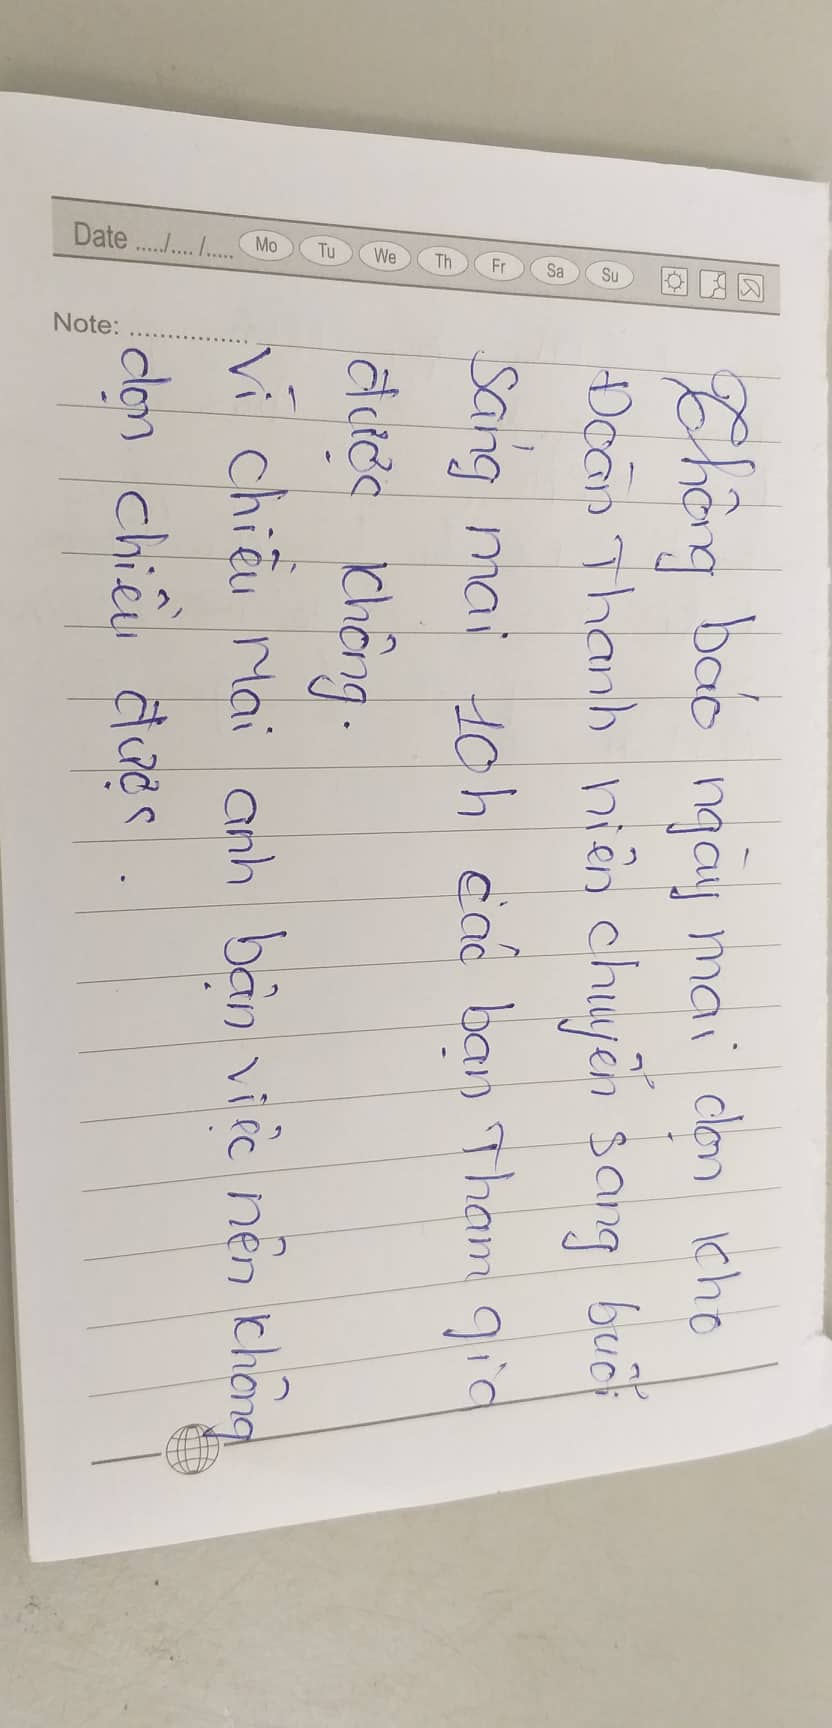 Date ...../..... /..... Mo Tu We Th Fr Sa Su
Note: ................
Thông báo ngày mai dọn kho
Đoàn Thanh niên chuyển sang buổi
sáng mai 10h các bạn Tham gia
được không.
Vì chiều Mai anh bận việc nên không
dọn chiều được.